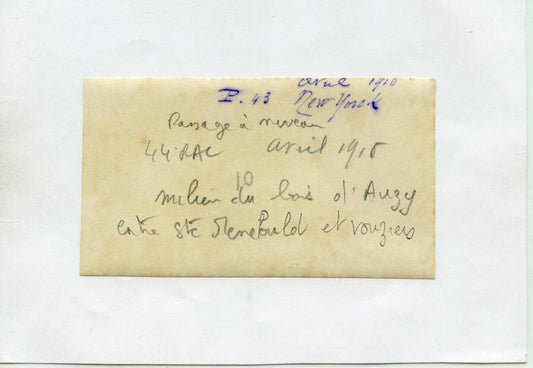 avril 1910
P. 43 New York
Passage à niveau
44 RAC avril 1915
10
milieu du bois d'Auzy
entre Ste Menehould et Vouziers